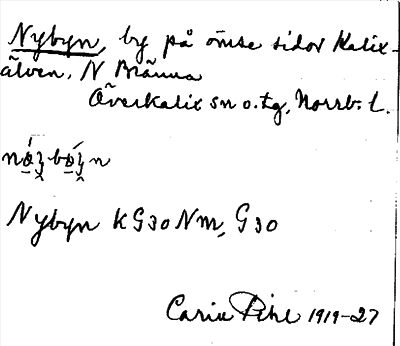 Nybyn, by på ömse sidor Kalix-
älven, N Bränna
Överkalix sn o. tg, Norrb. l.
Nybyn KG30Nm, G30
Carin Pihl 1919-27